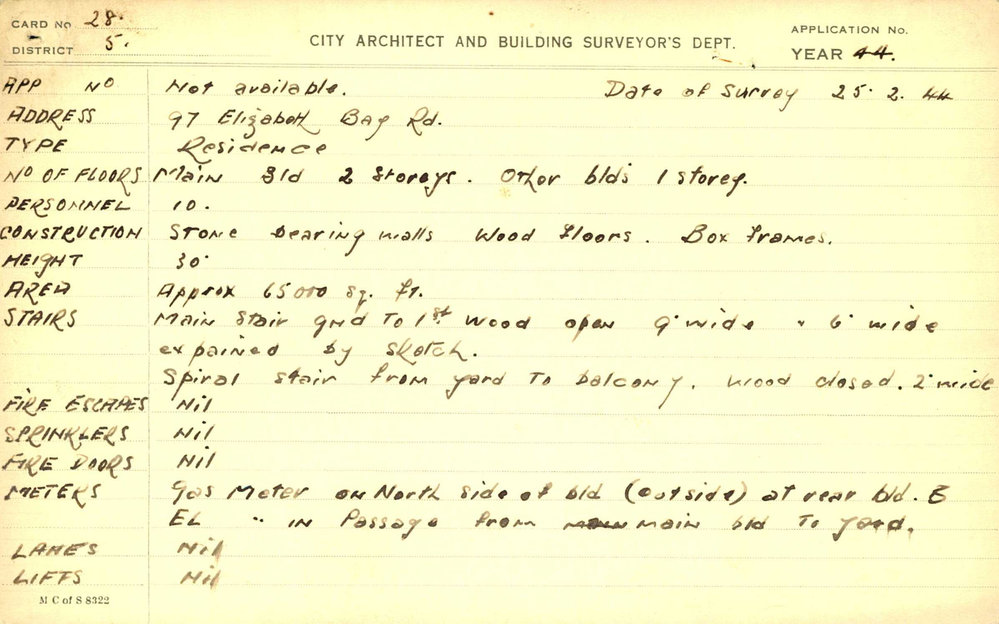 CARD No 28.
DISTRICT 5.
CITY ARCHITECT AND BUILDING SURVEYOR'S DEPT.
APPLICATION No.
YEAR 44.
APP NO Not available. Date of Survey 25. 2. 44
ADDRESS 97 Elizabeth Bay Rd.
TYPE Residence
NO OF FLOORS Main Bld 2 Storeys. Other blds 1 storey.
PERSONNEL 10.
CONSTRUCTION Stone bearing walls Wood floors. Box frames.
HEIGHT 30'
AREA Approx 65000 sq. ft.
STAIRS Main Stair gnd To 1st Wood open 9' wide " 6' wide
expained by sketch.
Spiral stair from yard To balcony. Wood closed. 2' wide
FIRE ESCAPES Nil
SPRINKLERS Nil
FIRE DOORS Nil
METERS Gas Meter on North side of bld (outside) at rear bld. E
EL " in Passage from main bld To yard.
LANES Nil
LIFTS Nil
M C of S 8322